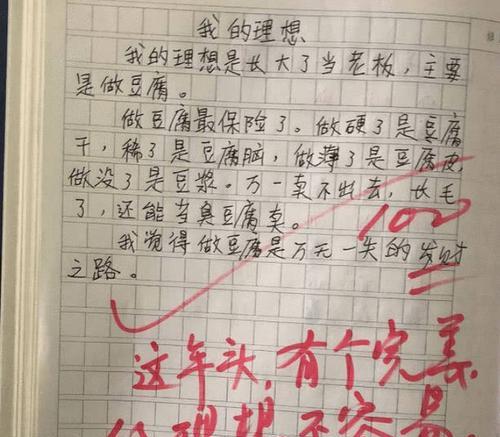 我的理想
我的理想是长大了当老板，主要
是做豆腐。
做豆腐最保险了。做硬了是豆腐
干，稀了是豆腐脑，做薄了是豆腐皮，
做没了是豆浆。万一卖不出去，长毛
了，还能当臭豆腐卖。
100
我觉得做豆腐是万无一失的发财
之路。
这年头，有个完美
理想不容易